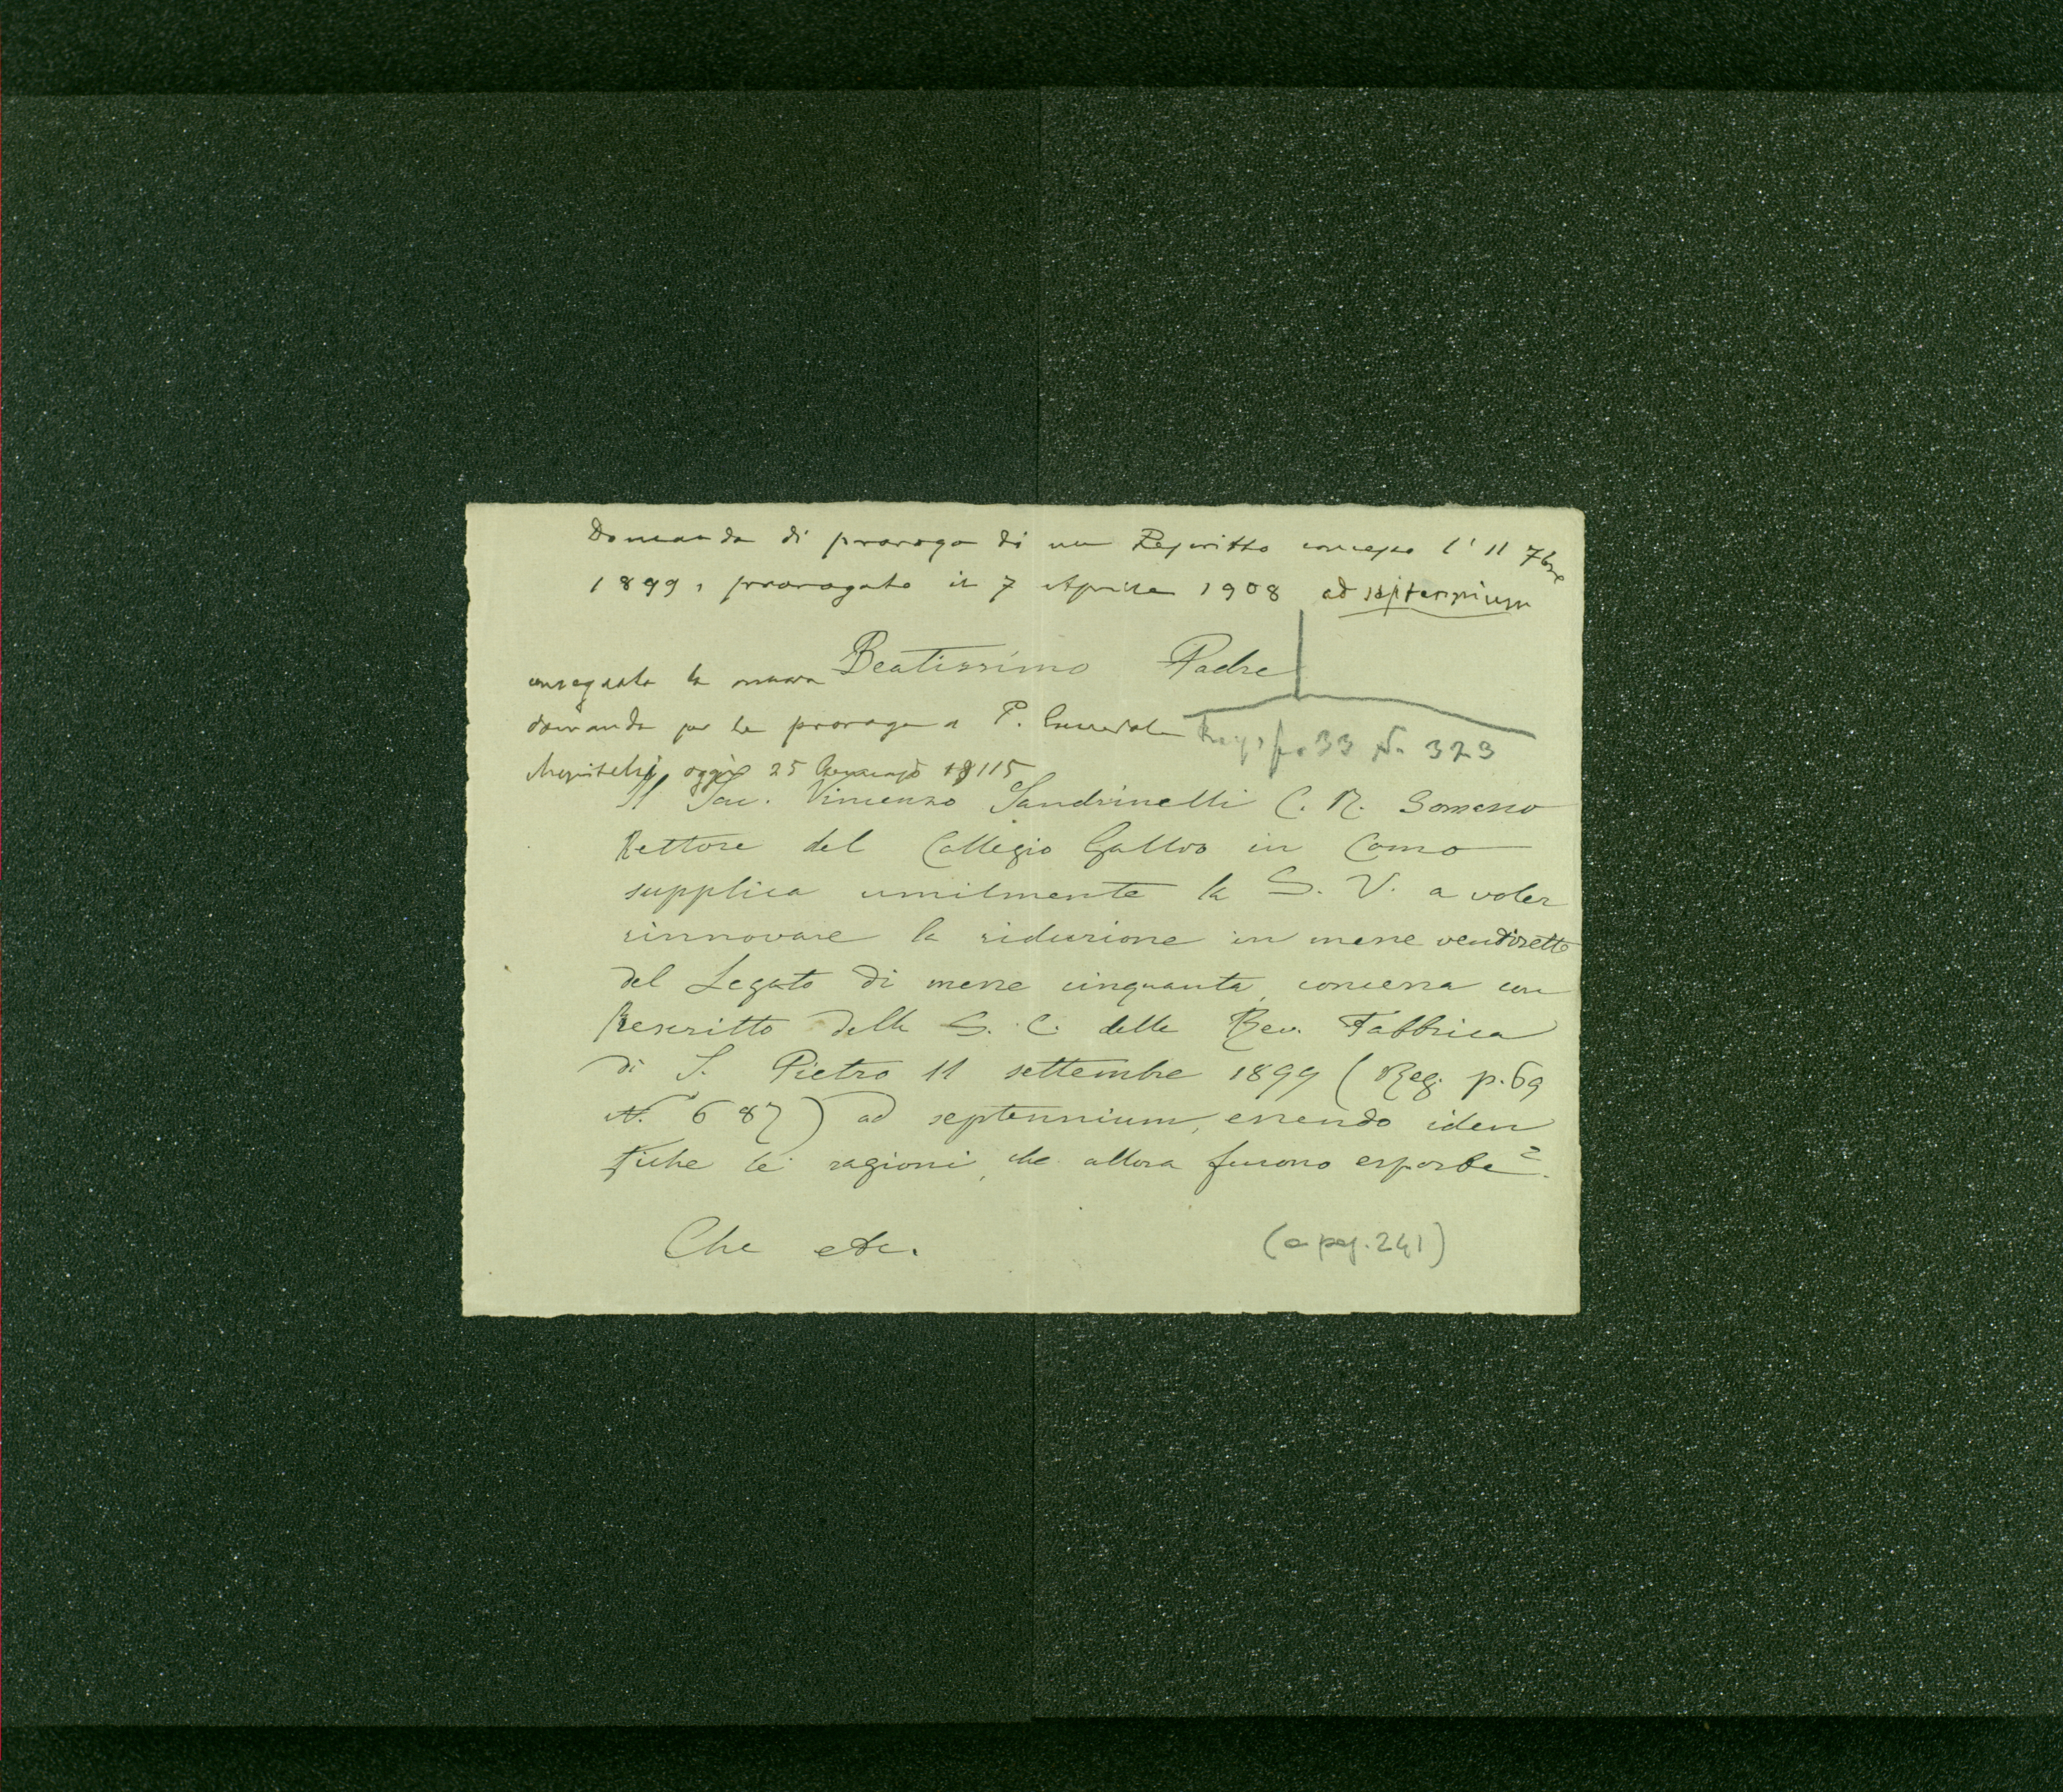 Domanda di proroga di un Rescritto concesso l' 11 7bre
1899, prorogato il 7 Aprile 1908 ad septennium
Beatissimo Padre
consegnata la nuova
domanda per la proroga a P.
oggi 25 Gennajo 1915
Reg. fo 33 N. 323
Il Sac. Vincenzo Sandrinelli C. R. Somasco
Rettore del Collegio Gallio in Como
supplica umilmente la S. V. a voler
rinnovare la riduzione in messe ventisette
del Legato di messe cinquanta, concessa con
Rescritto della S. C. della Rev. Fabbrica
di S. Pietro 11 settembre 1899 (Reg. p. 69
N. 687) ad septennium, essendo iden
tiche le ragioni, che allora furono esposte.
Che etc.
(a pag. 241)